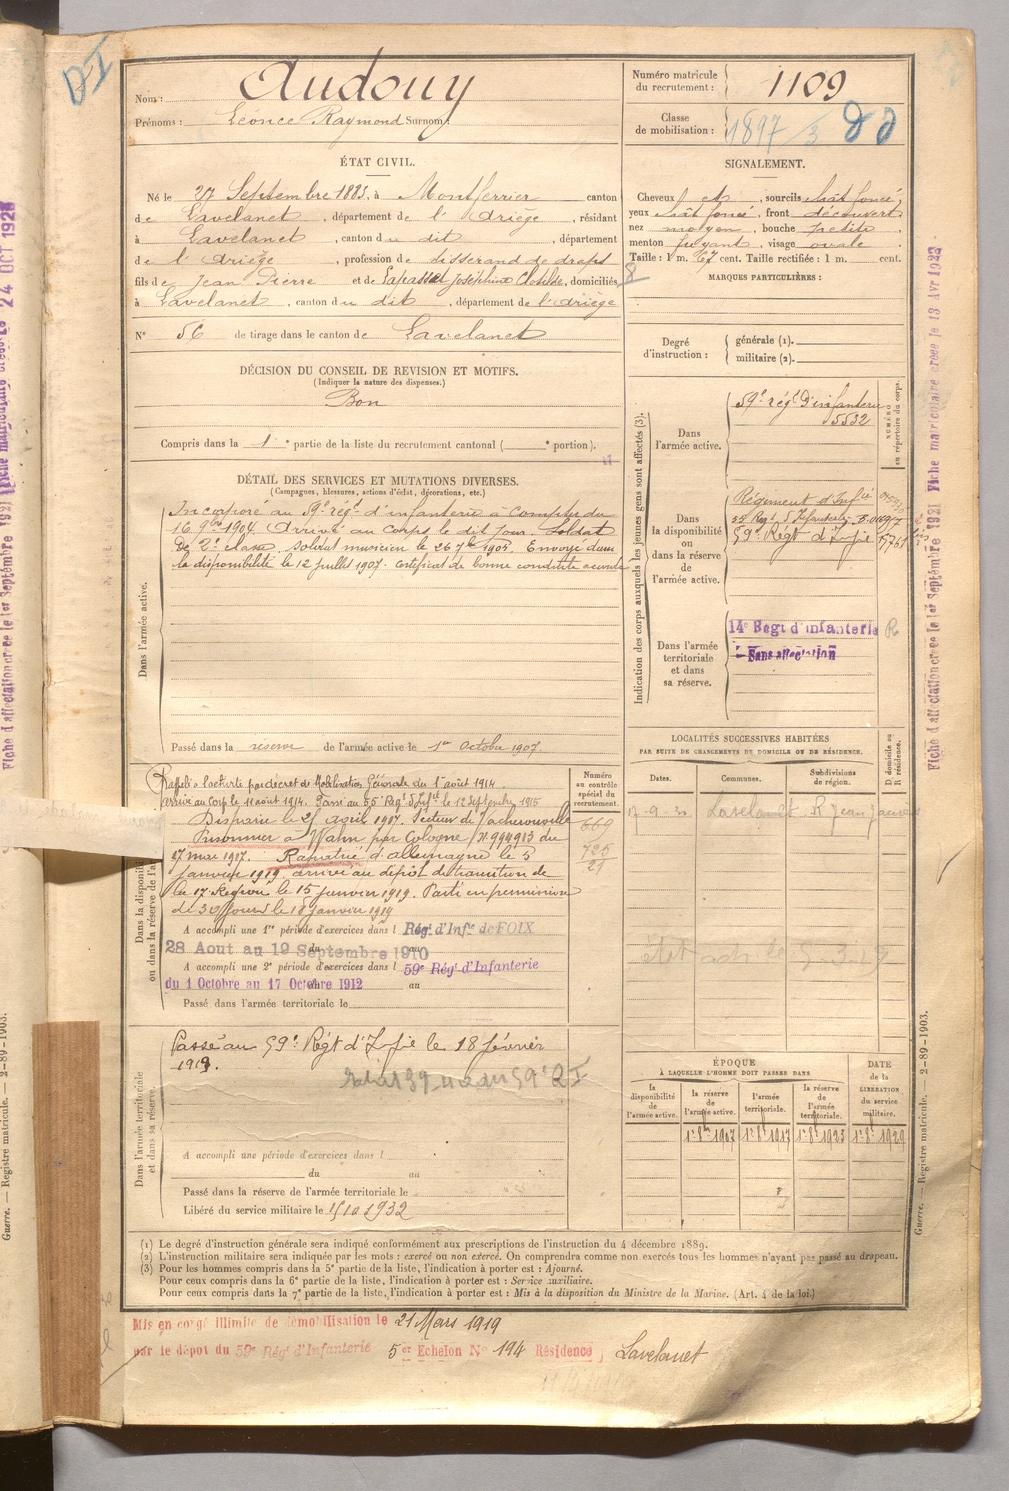 Nom : Audouy
Prénoms : Léonce Raymond Surnom :
Numéro matricule
du recrutement : 1109
Classe
de mobilisation : 1897/3
ÉTAT CIVIL.
Né le 27 Septembre 1883, à Montferrier canton
de Lavelanet, département de l'Ariège, résidant
à Lavelanet, canton du dit, département
de l'Ariège, profession de tisserand de draps
fils de Jean Pierre et de Lapasset Joséphine Clotilde, domiciliés
à Lavelanet, canton du dit, département de l'Ariège
N° 56 de tirage dans le canton de Lavelanet
SIGNALEMENT.
Cheveux et, sourcils chât foncé,
yeux chât foncé, front découvert
nez moyen, bouche petite
menton fuyant, visage ovale
Taille : 1 m. 67 cent. Taille rectifiée : 1 m. cent.
MARQUES PARTICULIÈRES :
Degré
d'instruction :
générale (1).
militaire (2).
DÉCISION DU CONSEIL DE REVISION ET MOTIFS.
(Indiquer la nature des dispenses.)
Bon
Compris dans la 1e partie de la liste du recrutement cantonal ( e portion).
DÉTAIL DES SERVICES ET MUTATIONS DIVERSES.
(Campagnes, blessures, actions d'éclat, décorations, etc.)
Dans l'armée active.
Incorporé au 59e régt d'infanterie à compter du
16 9bre 1904. Arrivé au corps le dit jour. Soldat
de 2e classe, soldat musicien le 26 7bre 1905. Envoyé dans
la disponibilité le 12 juillet 1907. Certificat de bonne conduite accordé
Passé dans la réserve de l'armée active le 1er Octobre 1907.
Indication des corps auxquels les jeunes gens sont affectés (3).
Dans
l'armée active.
59e régt d'infanterie
5532
NUMÉRO
au répertoire du corps.
Dans
la disponibilité
ou
dans la réserve
de
l'armée active.
Régiment d'Infie
59e Régt d'Infie
Dans l'armée
territoriale
et dans
sa réserve.
14e Regt d'infanterie R
Sans affectation
LOCALITÉS SUCCESSIVES HABITÉES
PAR SUITE DE CHANGEMENTS DE DOMICILE OU DE RÉSIDENCE.
Dates. Communes. Subdivisions
de région.
D domicile ou
R résidence.
Lavelanet R Jean Jaurès
Dans la disponibilité
ou dans la réserve de l'armée active
Numéro
au contrôle
spécial du
recrutement.
669
725
Rappelé à l'activité par décret de Mobilisation Générale du 1er août 1914
arrivé au Corps le 11 août 1914. Passé au 55 Régt d'Infie le 12 Septembre 1915
Disparu le 25 avril 1917. Secteur de
Prisonnier à Wahn par Cologne (N. 994913 du
27 mai 1917. Rapatrié d'allemagne le 3
janvier 1919. arrivé au dépôt de transition de
la 17e Région le 15 janvier 1919. Parti en permission
de 30 jours le 18 janvier 1919
A accompli une 1re période d'exercices dans l Rég. d'Infie de FOIX
28 Aout au 19 Septembre 1910
A accompli une 2e période d'exercices dans l 59e Rég. d'Infanterie
du 1 Octobre au 17 Octobre 1912 au
Passé dans l'armée territoriale le
Dans l'armée territoriale
et dans sa réserve.
Passé au 59e Régt d'Infie le 18 février
1918.
A accompli une période d'exercices dans l
du au
Passé dans la réserve de l'armée territoriale le
Libéré du service militaire le 15/10 1932
ÉPOQUE
À LAQUELLE L'HOMME DOIT PASSER DANS
la
disponibilité
de
l'armée active.
la réserve
de
l'armée active.
l'armée
territoriale.
la réserve
de
l'armée
territoriale.
DATE
de la
LIBÉRATION
du service
militaire.
1er 8bre 1907 1er 8bre 1917 1er 8bre 1923 1er 8bre 1929
(1) Le degré d'instruction générale sera indiqué conformément aux prescriptions de l'instruction du 4 décembre 1889.
(2) L'instruction militaire sera indiquée par les mots : exercé ou non exercé. On comprendra comme non exercés tous les hommes n'ayant pas passé au drapeau.
(3) Pour les hommes compris dans la 5e partie de la liste, l'indication à porter est : Ajourné.
Pour ceux compris dans la 6e partie de la liste, l'indication à porter est : Service auxiliaire.
Pour ceux compris dans la 7e partie de la liste, l'indication à porter est : Mis à la disposition du Ministre de la Marine. (Art. 4 de la loi.)
Mis en congé illimité de démobilisation le 21 Mars 1919
par le dépôt du 59e Rég. d'Infanterie 5er Echelon N° 194 Résidence, Lavelanet
Guerre. — Registre matricule. — 2-89-1903.
Fiche d'affectation créée le 1er Septembre 1921 Fiche matriculaire créée le 13 Avr 1923
Guerre. — Registre matricule. — 2-89-1903.
Fiche d'affectation créée le 1er Septembre 1921 Fiche matriculaire créée le 24 OCT 1928